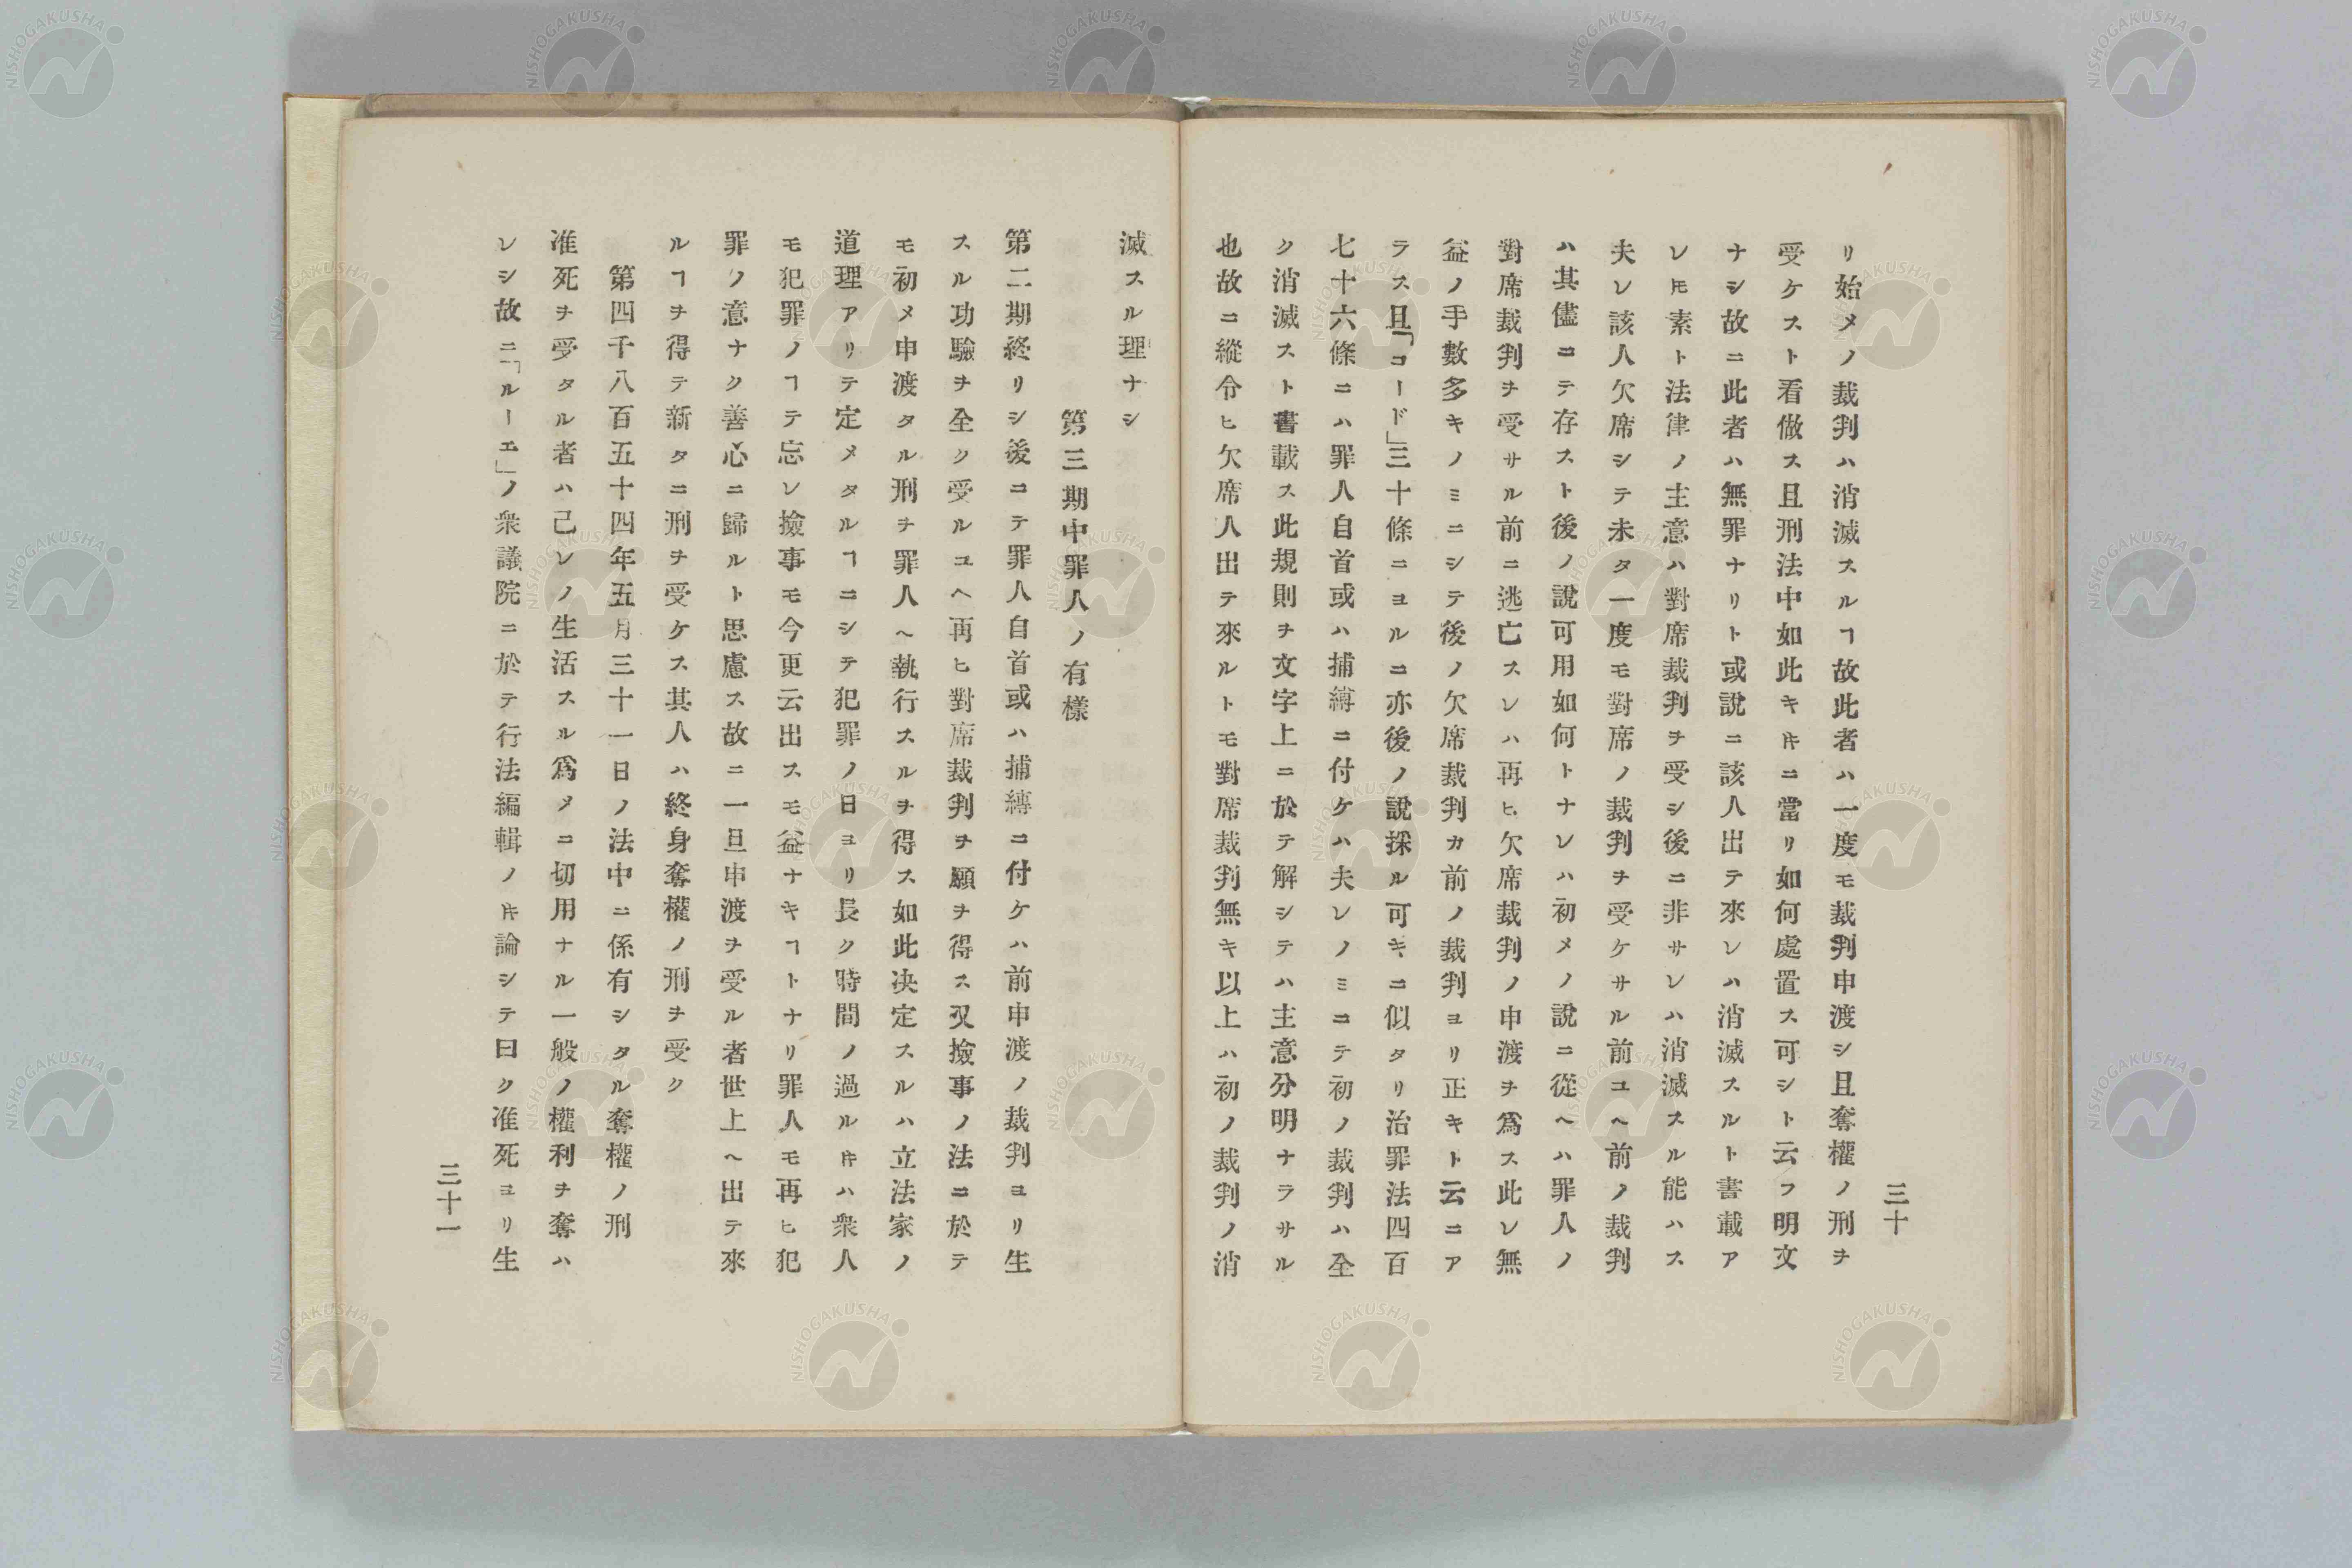 三十
リ始メノ裁判ハ消滅スルヿ故此者ハ一度モ裁判申渡シ且奪權ノ刑ヲ
受ケスト看做ス且刑法中如此キ𪜈ニ當リ如何處置ス可シト云フ明文
ナシ故ニ此者ハ無罪ナリト或說ニ該人出テ來レハ消滅スルト書載ア
レ𪜈素ト法律ノ主意ハ對席裁判ヲ受シ後ニ非サレハ消滅スル能ハス
夫レ該人欠席シテ未タ一度モ對席ノ裁判ヲ受ケサル前ユヘ前ノ裁判
ハ其儘ニテ存スト後ノ說可用如何トナレハ初メノ說ニ從ヘハ罪人ノ
對席裁判ヲ受サル前ニ逃亡スレハ再ヒ欠席裁判ノ申渡ヲ爲ス此レ無
益ノ手數多キノミニシテ後ノ欠席裁判カ前ノ裁判ヨリ正キト云ニア
ラス且「コード」三十條ニヨルニ亦後ノ說採ル可キニ似タリ治罪法四百
七十六條ニハ罪人自首或ハ捕縛ニ付ケハ夫レノミニテ初ノ裁判ハ全
ク消滅スト書載ス此規則ヲ文字上ニ於テ解シテハ主意分明ナラサル
也故ニ縱令ヒ欠席人出テ來ルトモ對席裁判無キ以上ハ初ノ裁判ノ消
滅スル理ナシ
第三期中罪人ノ有樣
第二期終リシ後ニテ罪人自首或ハ捕縛ニ付ケハ前申渡ノ裁判ヨリ生
スル功驗ヲ全ク受ルユヘ再ヒ對席裁判ヲ願ヲ得ス又撿事ノ法ニ於テ
モ初メ申渡タル刑ヲ罪人ヘ執行スルヲ得ス如此决定スルハ立法家ノ
道理アリテ定メタルヿニシテ犯罪ノ日ヨリ長ク時間ノ過ル𪜈ハ衆人
モ犯罪ノヿテ忘レ撿事モ今更云出スモ益ナキヿトナリ罪人モ再ヒ犯
罪ノ意ナク善心ニ歸ルト思慮ス故ニ一旦申渡ヲ受ル者世上ヘ出テ來
ルヿヲ得テ新タニ刑ヲ受ケス其人ハ終身奪權ノ刑ヲ受ク
第四千八百五十四年五月三十一日ノ法中ニ係有シタル奪權ノ刑
准死ヲ受タル者ハ己レノ生活スル爲メニ切用ナル一般ノ權利ヲ奪ハ
レシ故ニ「ルーエ」ノ衆議院ニ於テ行法編輯ノ𪜈論シテ曰ク准死ヨリ生
三十一